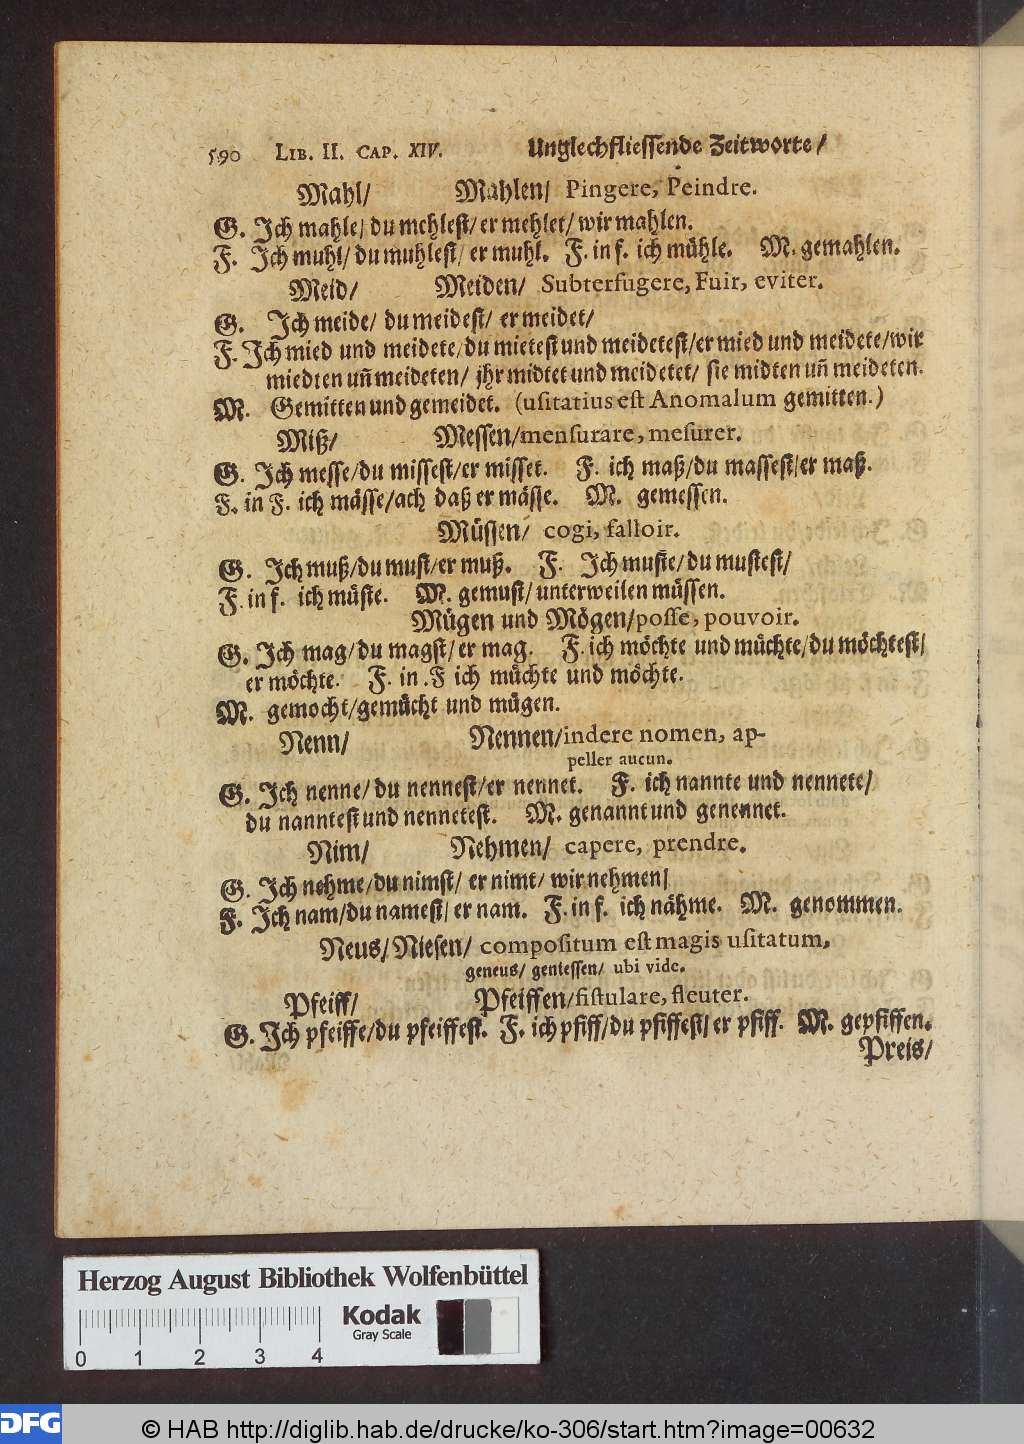 590 LIB. II. CAP. XIV. Unglechfliessende Zeitworte/
Mahl/ Mahlen/ Pingere, Peindre.
G. Ich mahle/ du mehlest/ er mehlet/ wir mahlen.
F. Ich muhl/ du muhlest/ er muhl. F. in f. ich mühle. M. gemahlen.
Meid/ Meiden/ Subterfugere, Fuir, eviter.
G. Ich meide/ du meidest/ er meidet/
F. Ich mied und meidete/ du mietest und meidetest/ er mied und meidete/ wir
miedten uñ meideten/ jhr midtet und meidetet/ sie midten uñ meideten.
M. Gemitten und gemeidet. (usitatius est Anomalum gemitten.)
Miß/ Messen/ mensurare, mesurer.
G. Ich messe/ du missest/ er misset. F. ich maß/ du massest/ er maß.
F. in F. ich mässe/ ach daß er mässe. M. gemessen.
Müssen/ cogi, falloir.
G. Ich muß/ du must/ er muß. F. Ich muste/ du mustest/
F. in f. ich müste. M. gemust/ unterweilen müssen.
Mügen und Mögen/ posse, pouvoir.
G. Ich mag/ du magst/ er mag. F. ich möchte und müchte/ du möchtest/
er möchte. F. in .F ich müchte und möchte.
M. gemocht/ gemücht und mügen.
Nenn/ Nennen/ indere nomen, ap-
peller aucun.
G. Ich nenne/ du nennest/ er nennet. F. ich nannte und nennete/
du nanntest und nennetest. M. genannt und genennet.
Nim/ Nehmen/ capere, prendre.
G. Ich nehme/ du nimst/ er nimt/ wir nehmen/
F. Ich nam/ du namest/ er nam. F. in f. ich nähme. M. genommen.
Neus/ Niesen/ compositum est magis usitatum,
geneus/ geniessen/ ubi vide.
Pfeiff/ Pfeiffen/ fistulare, fleuter.
G. Ich pfeiffe/ du pfeiffest. F. ich pfiff/ du pfiffest/ er pfiff. M. gepfiffen.
Preis/
Herzog August Bibliothek Wolfenbüttel
Kodak
Gray Scale
0 1 2 3 4
DFG
© HAB http://diglib.hab.de/drucke/ko-306/start.htm?image=00632